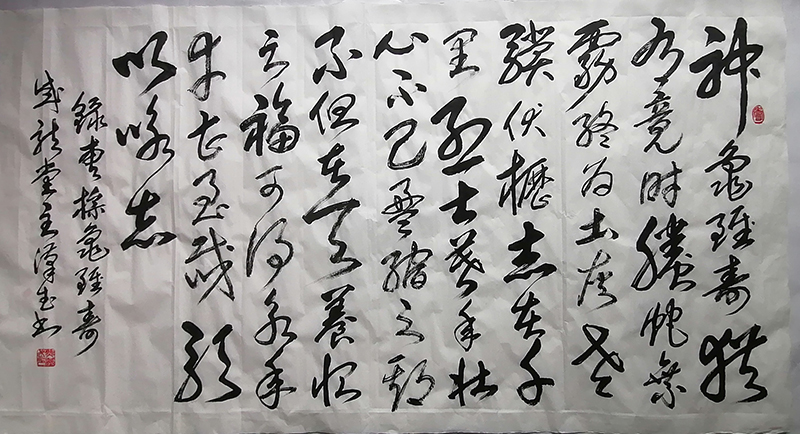 神龜雖壽猶
有竟時騰蛇乘
霧終為土灰老
驥伏櫪志在千
里烈士暮年壯
心不已盈縮之期
不但在天養怡
之福可得永年
幸甚至哉歌
以咏志
錄曹操龜雖壽
龍堂主漢书